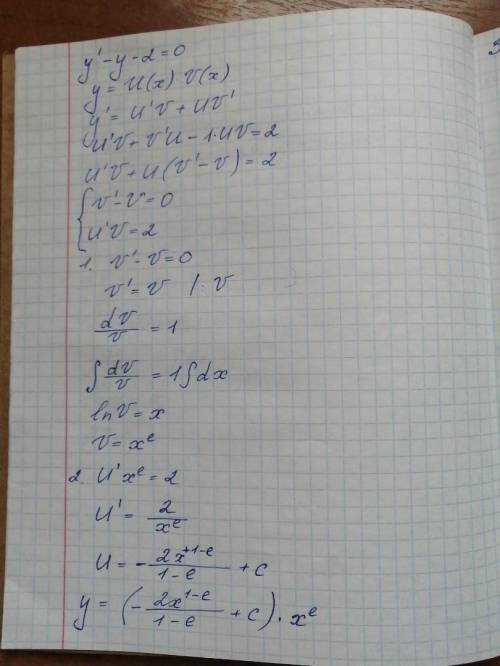 y' - y - 2 = 0
y = U(x) V(x)
y' = U'V + UV'
U'V + V'U - 1·UV = 2
U'V + U(V' - V) = 2
{ V' - V = 0
U'V = 2
1. V' - V = 0
V' = V /· V
dV/V = 1
∫ dV/V = 1∫dx
ln V = x
V = x^e
2. U'x^e = 2
U' = 2/x^e
U = - 2x^{+1-e}/(1-e) + C
y = (- 2x^{1-e}/(1-e) + C) · x^e